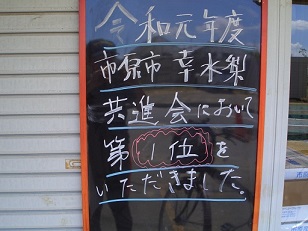 令和元年度
市原市 幸水梨
共進会において
第1位を
いただきました。